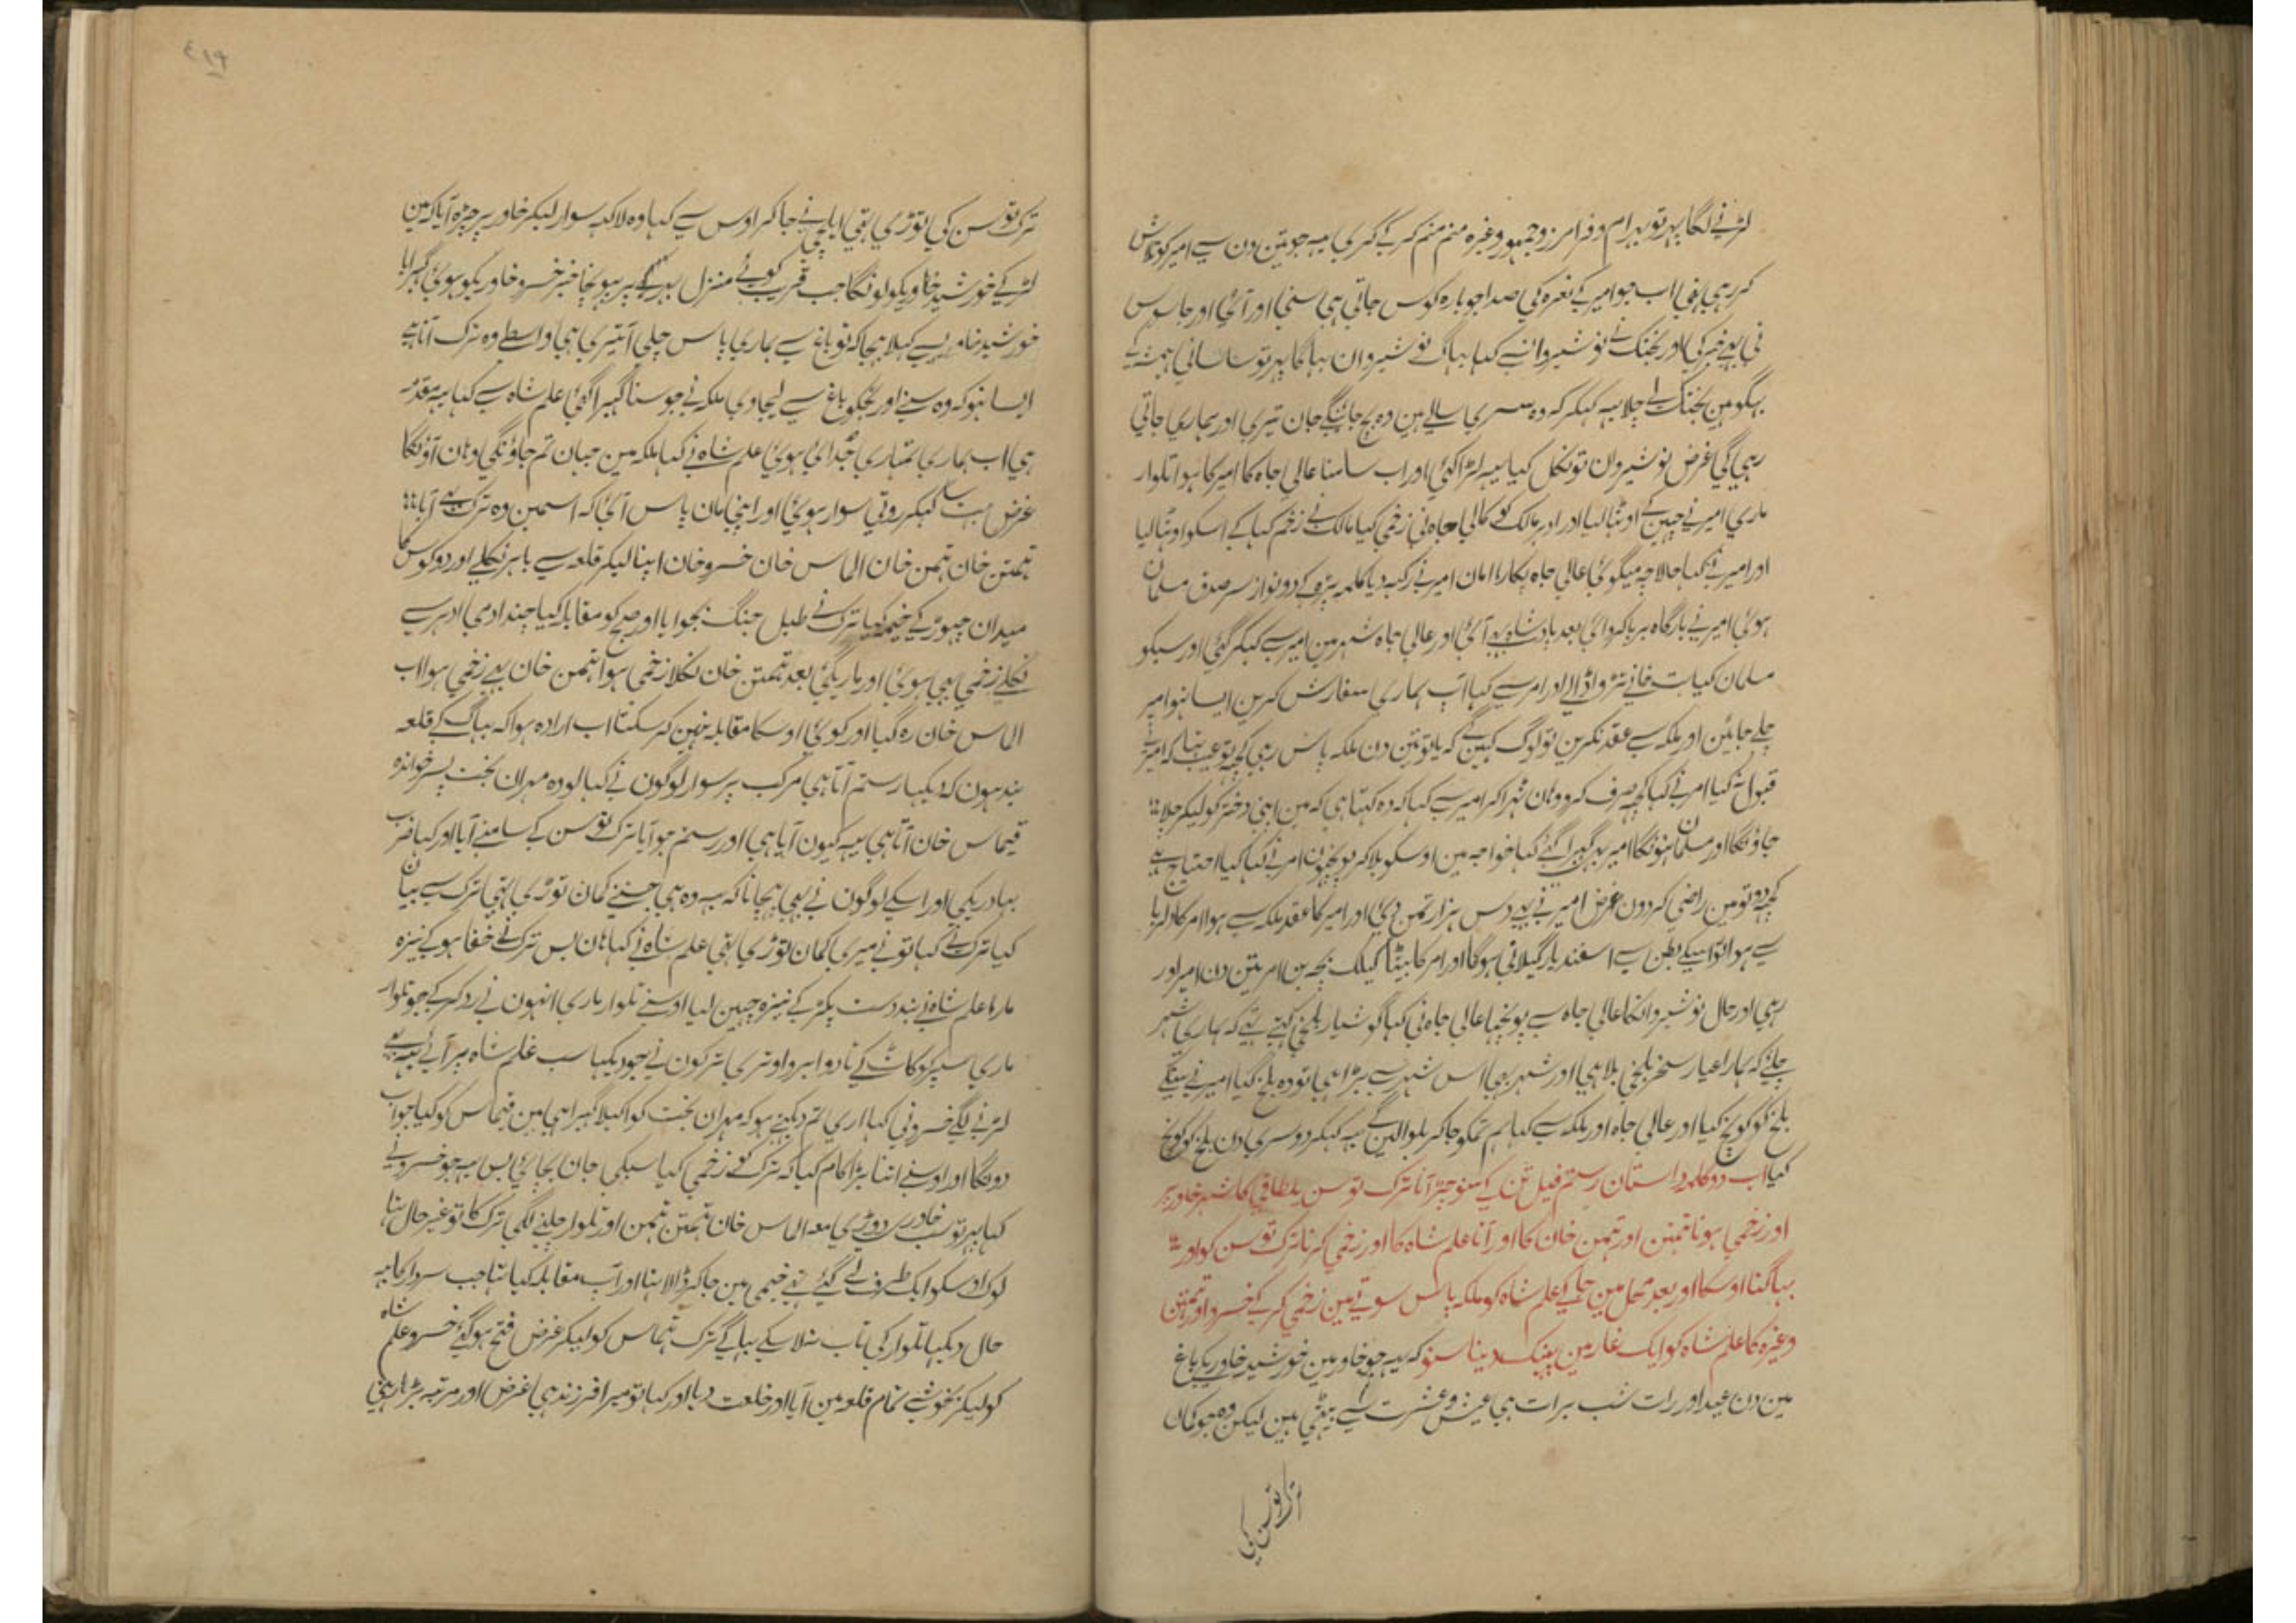 لڑنے لگا پہر تو بہرام و فرامرز و جمہور وغیرہ منم منم کر کے گری یہ جو تین دن سے امیر کو تلاش
کر رہی تہی اب جو امیر کے نعرہ کی صدا جو بارہ کوس جاتی ہی سنی اور آئی اور جاسوس
نی بہی خبر کی اور بختک نے نوشیروان سے کہا بہاگ نوشیروان بہاگا پہر تو ساسانی
بہگو مین بختک نے چلا یہ کہکر کہ وہ سسری سالے ہین وہ بچ جائینگے جان تیری اور ہماری جاتی
رہی گی غرض نوشیروان تو نکل گیا یہ لڑا کئی اور اب سامنا عالی جاہ کا امیر کا ہوا تلوار
ماری امیر نے چہین کے اوٹہا لیا اور اودہر مالک کو عالی جاہ نی زخمی کیا مالک نے زخم کہا کے اسکو اوٹہا لیا
اور امیر نے کہا حالا چہ میگوئی عالی جاہ پکارا امان امیر نے رکہدیا کلمہ پڑہ کے دونو از سر صدق مسلمان
ہوئی امیر نے بارگاہ برپا کروائی بعد بادشاہ بہی آئی اور عالی جاہ شہر مین امیر سے کہکر گئی اور سبکو
مسلمان کیا بت خانے تڑوا ڈالے اور امر سے کہا آپ ہماری سفارش کرین ایسا نہو امیر
چلے جائین اور ملکہ سے عقد نکرین تو لوگ کہین گے کہ یا تو تین دن ملکہ پاس رہی کچہ تو عیب تہا کہ امیر نے
قبول نہ کیا امر نے کہا کچہ صرف کرو وہان ٹہرا کر امیر سے کہا کہ وہ کہتا ہی کہ مین اپنی دختر کو لیکر چلا
جاونگا اور مسلمان نہونگا امیر بہی گہبرا گئے کہا خواجہ مین اوسکو بلا کر پوچہون امر نے کہا کیا احتیاج ہے
کچہ دو تو مین راضی کر دون غرض امیر نے بہی دس ہزار تمن دئی اور امیر کا عقد ملکہ سے ہوا امر کا دلربا
سے ہوا تو اسکے بطن سے اسفندیار گیلانی ہوگا اور امر کا بیٹا گیلک بچہ بن امر تین دن امیر اور
رہی اور حال نوشیروان کا عالی جاہ سے پوچہا عالی جاہ نی کہا گوشیار بلخی کہتے تہے کہ ہماری شہر
چلئے کہ ہمارا عیار سنجر بلخی بلا ہی اور شہر بہی اس شہر سے بڑا ہی تو وہ بلخ گیا امیر نے
بلخ کو کوچ کیا اور عالی جاہ اور ملکہ سے کہا ہم تمکو جا کر بلوا لین گے یہ کہکر دوسری دن بلخ کو کوچ
کیا اب دو کلمہ داستان رستم فیل تن کے سنو چڑہ آنا ترک توسن یلطاقی کا شہر خاور پر
اور زخمی ہونا تہمتن اور تہمن خان کا اور آنا علم شاہ کا اور زخمی کرنا ترک توسن کو اور
بہاگنا اوسکا اور بعد محل مین جا کے علم شاہ کو ملکہ پاس سوتے مین زخمی کر کے خسرو اور تہمتن
وغیرہ کا علم شاہ کو ایک غار مین پہینک دینا سنو کہ یہ جو خاور مین خورشید خاوریکے باغ
مین دن عید اور رات شب برات ہی عیش و عشرت سے بیٹہی ہین لیکن وہ جو کمان
ترک توسن کی توڑی تہی ایلچی نے جا کر اوس سے کہا وہ لاکہہ سوار لیکر خاور پر چڑہ آیا کہ مین
لڑ کے خورشید خاوریکو لونگا جب قریب کوئے منزل بہر کے پر پہونچا خبر خسرو خاوریکو ہوئی گہبرایا
خورشید خاوریسے کہلا بہیجا کہ تو باغ سے ہماری پاس چلی آ تیری ہی واسطے وہ ترک آتا ہے
ایسا نہو کہ وہ سنے اور تجکو باغ سے لیجاوی ملکہ نی جو سنا گہبرا گئی علم شاہ سے کہا یہ مقدمہ
ہی اب ہماری تمہاری جدائی ہوئی علم شاہ نے کہا ملکہ مین جہان تم جاؤنگی وہان آؤنگا
غرض بہت سا کہکر روتی سوار ہوئی اور اپنی مان پاس آئی کہ اسمین وہ ترک بہی آیا
تہمتن خان تہمن خان الماس خان خسرو خان اپنا لیکر قلعہ سے باہر نکلے اور دو کوس کا
میدان چہوڑ کے خیمہ کیا ترک نے طبل جنگ بجوایا اور صبح کو مقابلہ کیا چند آدمی ادہر سے
نکلے زخمی بہی ہوئی اور ماریگئی بعد تہمتن خان نکلا زخمی ہوا تہمن خان بہی زخمی ہوا اب
الماس خان رہ گیا اور کوئی اوسکا مقابلہ نہین کر سکتا اب ارادہ ہوا کہ بہاگ کے قلعہ
بند ہون کہ دیکہا رستم آتا ہی مرکب پر سوار لوگون نے کہا لو وہ مہران بخت پسر خواندہ
قیماس خان آتا ہی یہ کیون آیا ہی اور رستم جو آیا ترک توسن کے سامنے آیا اور کہا ضرب
بہادریکی اور اسکے لوگون نے بہی پہچانا کہ یہ وہ ہی جسنے کمان توڑی تہی ترک سے بیان
کیا ترک نے کہا تو نے میری کمان توڑی تہی علم شاہ نے کہا ہان بس ترک نے خفا ہو کے نیزہ
مارا علم شاہ نے بند دست پکڑ کے نیزہ چہین لیا اوسنے تلوار ماری انہون نے رد کر کے جو تلوار
ماری سپر کو کاٹ کے تا دو ابرو اوتری ترکون نے جو دیکہا سب علم شاہ پر آئے یہ بہی
لڑنے لگے خسرو نی کہا اری تم دیکہتے ہو کہ مہران بخت کو اکیلا گہیرا ہی مین قیماس کو کیا جواب
دونگا اور اوسنے اتنا بڑا کام کیا کہ ترک کو زخمی کیا سبکی جان بچائی بس یہ جو خسرو نے
کہا پہر تو سب خاوری دوڑ پڑی معہ الماس خان تہمتن تہمن اور تلوار چلنے لگی ترک کا تو غیر حال تہا
لوگ اوسکو ایک طرف لے گئے تہے خیمی مین جا کر ڈالا تہا اور آپ مقابلہ کیا تہا جب سردار کا یہ
حال دیکہا تلوار کی تاب نلا سکے بہاگے ترک قیماس کو لیکر غرض فتح ہوگئے خسرو علم شاہ
کو لیکر بخوشی تمام قلعہ مین آیا اور خلعت دیا اور کہا تو میرا فرزند ہی غرض اور مرتبہ بڑہا